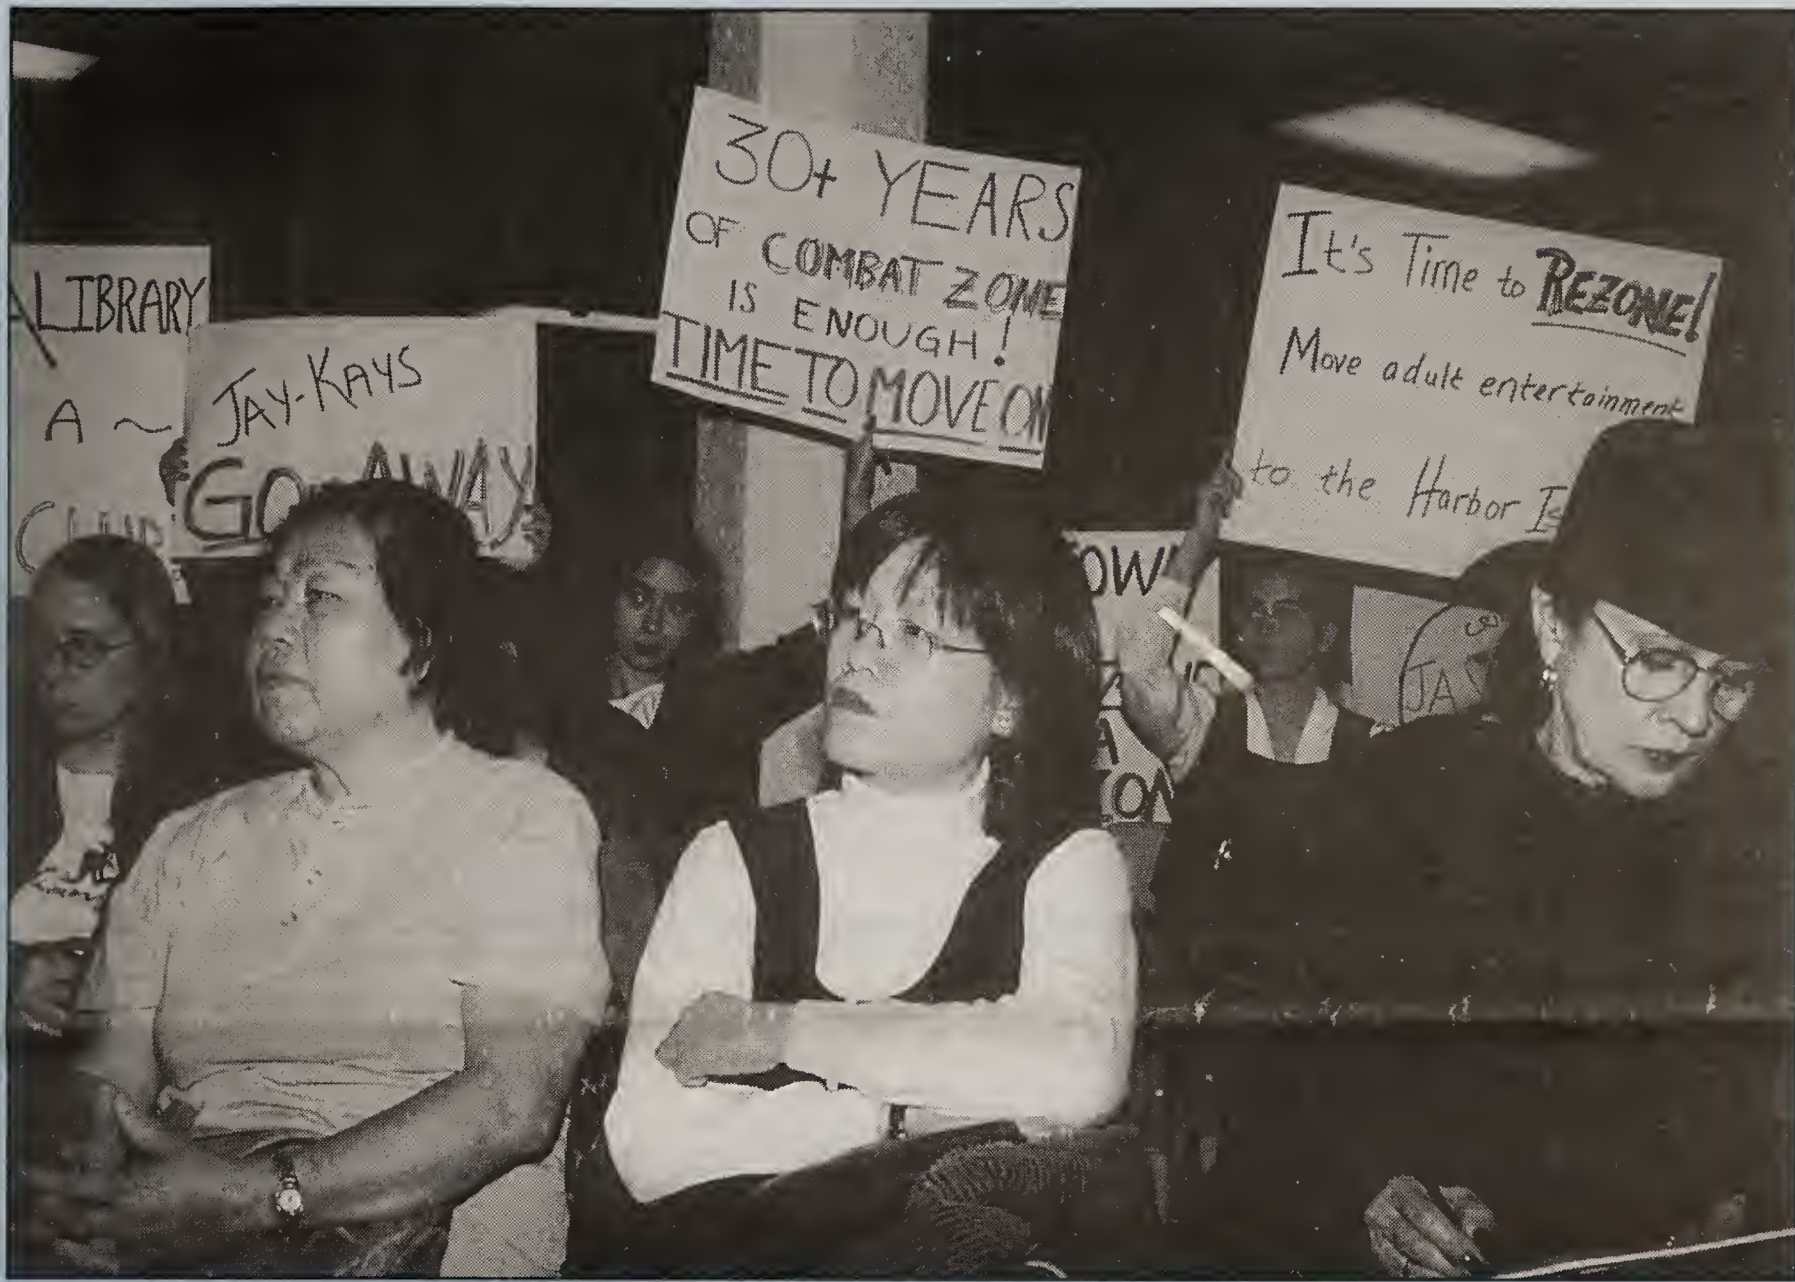 A LIBRARY
A ~
JAY-KAYS
GO AWAY
30+ YEARS
OF COMBAT ZONE
IS ENOUGH!
TIME TO MOVE ON
It's Time to REZONE!
Move adult entertainment
to the Harbor Is
OW
A
ON
JAY